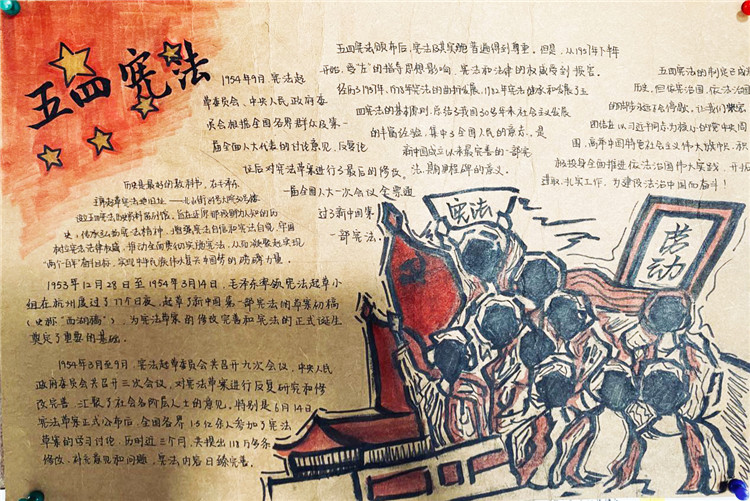 五四宪法
1954年9月,宪法起
草委员会、中央人民政府委
员会根据全国各界群众及第一
届全国人大代表的讨论意见,反复论
证后对宪法草案进行了最后的修改。
一届全国人大一次会议全票通
过了新中国第
一部宪法。
历史是最好的教科书。
史,传承弘扬宪法精神,增强宪法自信和宪法自觉,牢固
树立宪法法律权威,推动全面贯彻实施宪法,从而凝聚起实现
“两个百年”奋斗目标,实现中华民族伟大复兴中国梦的磅礴力量。
1953年12月28日至1954年3月14日,毛泽东率领宪法起草小
组在杭州度过了77个日夜,起草了新中国第一部宪法的草案初稿
(史称“西湖稿”),为宪法草案的修改完善和宪法的正式诞生
奠定了重要的基础。
1954年3月至9月,宪法起草委员会共召开九次会议,中央人民
政府委员会共召开三次会议,对宪法草案进行反复研究和修
改完善,汇聚了社会各阶层人士的意见。特别是6月14日
宪法草案正式公布后,全国各界1.5亿余人参加了宪法
草案的学习讨论,历时近三个月,共提出118万多条
修改、补充意见和问题,宪法内容日臻完善。
五四宪法颁布后,宪法及其实施普遍得到尊重。但是,从1957年下半年
开始,受“左”的指导思想影响,宪法和法律的权威受到损害。
四宪法的基本原则,总结了我国30多年来社会主义发展
的丰富经验,集中了全国人民的意志,是
新中国成立以来最完善的一部宪
法,具有里程碑的意义。
五四宪法的制定已成
历史,但依宪治国、依法治国
团结在以习近平同志为核心的党中央周
围,高举中国特色社会主义伟大旗帜,积
极投身全面推进依法治国伟大实践,开拓
进取,扎实工作,为建设法治中国而奋斗!
宪法
劳动